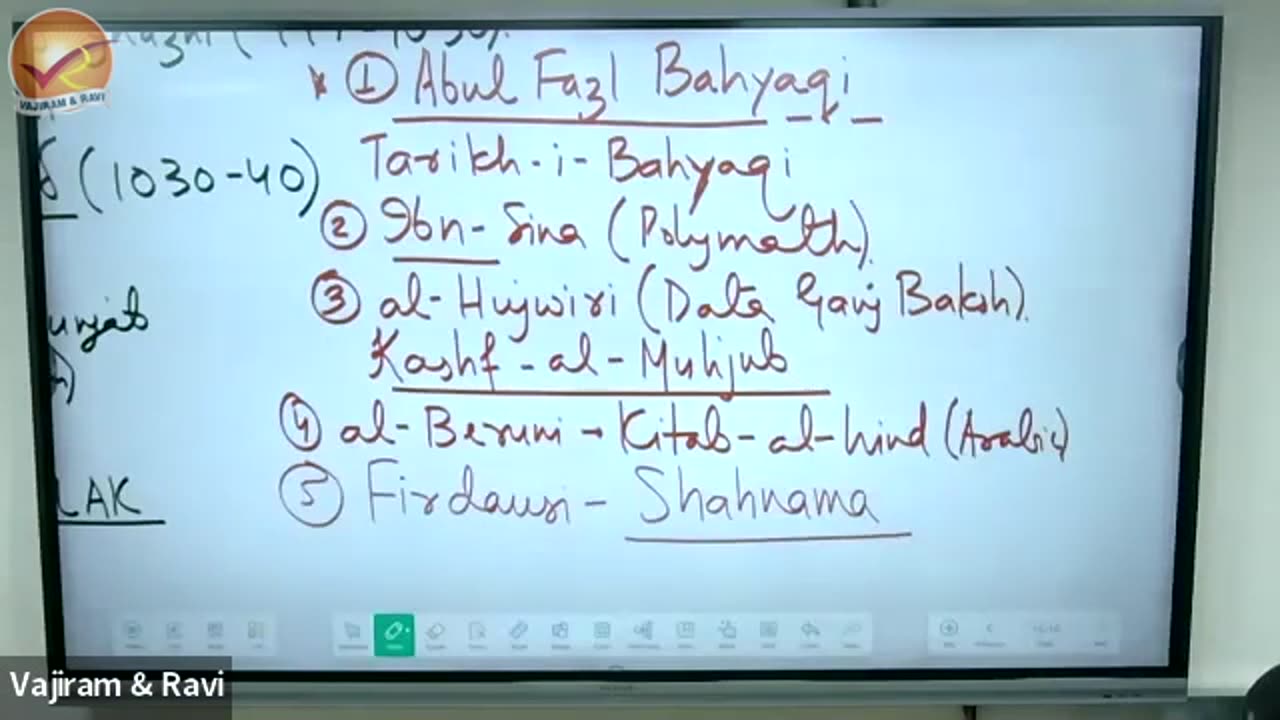 VAJIRAM & RAVI
* ① Abul Fazl Bahyaqi
(1030-40)
Tarikh-i-Bahyaqi
② Ibn-Sina (Polymath).
③ al-Hujwiri (Data Ganj Baksh).
Kashf-al-Muhjub
④ al-Beruni → Kitab-al-hind (Arabic)
⑤ Firdausi - Shahnama
LAK
Vajiram & Ravi